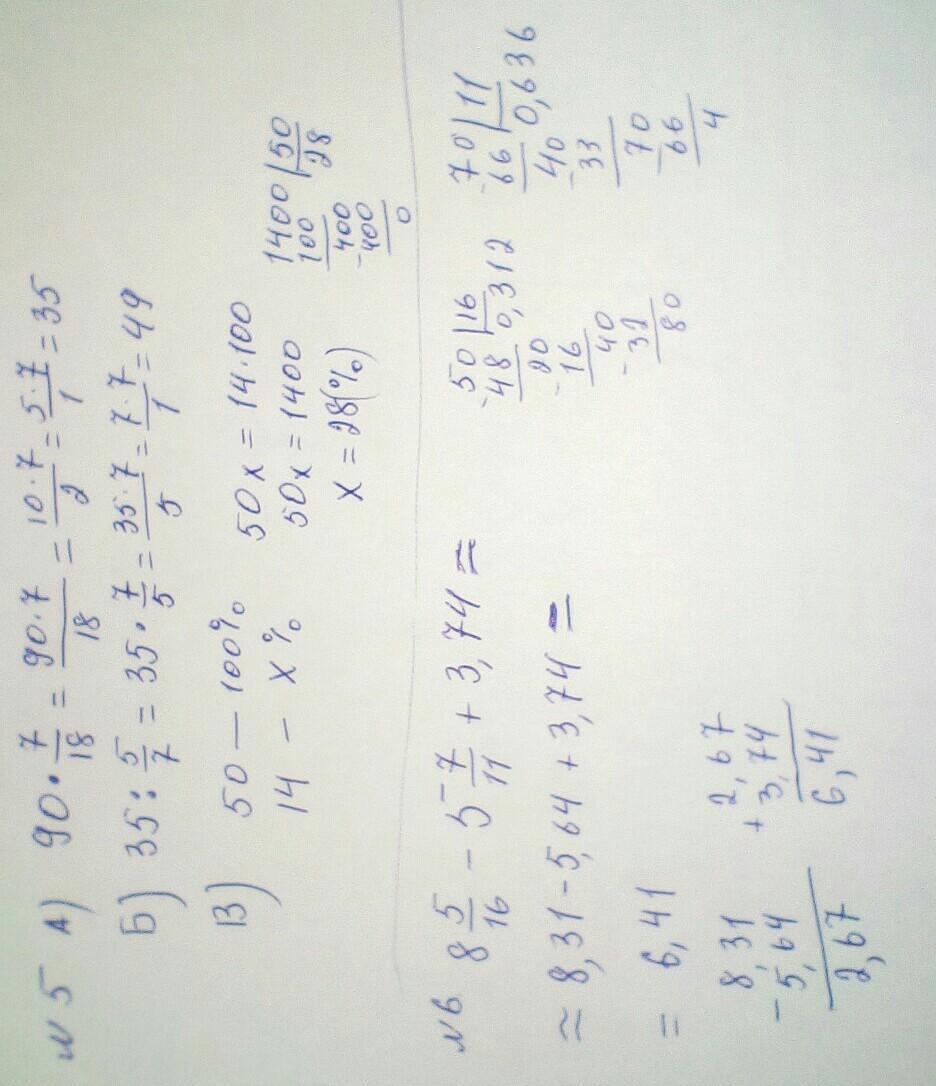 N 5 А) 90 · 7/18 = 90·7/18 = 10·7/2 = 5·7/1 = 35
Б) 35 : 5/7 = 35 · 7/5 = 35·7/5 = 7·7/1 = 49
В) 50 — 100% 50x = 14·100
14 – x% 50x = 1400
x = 28(%)
1400 | 50
100 28
-400
400
0
N6 8 5/16 - 5 7/11 + 3,74 =
≈ 8,31 - 5,64 + 3,74 =
= 6,41
-50 | 16
48 0,312
-20
16
-40
32
80
-70 | 11
66 0,636
-40
33
-70
66
4
8,31
- 5,64
2,67
+ 2,67
3,74
6,41